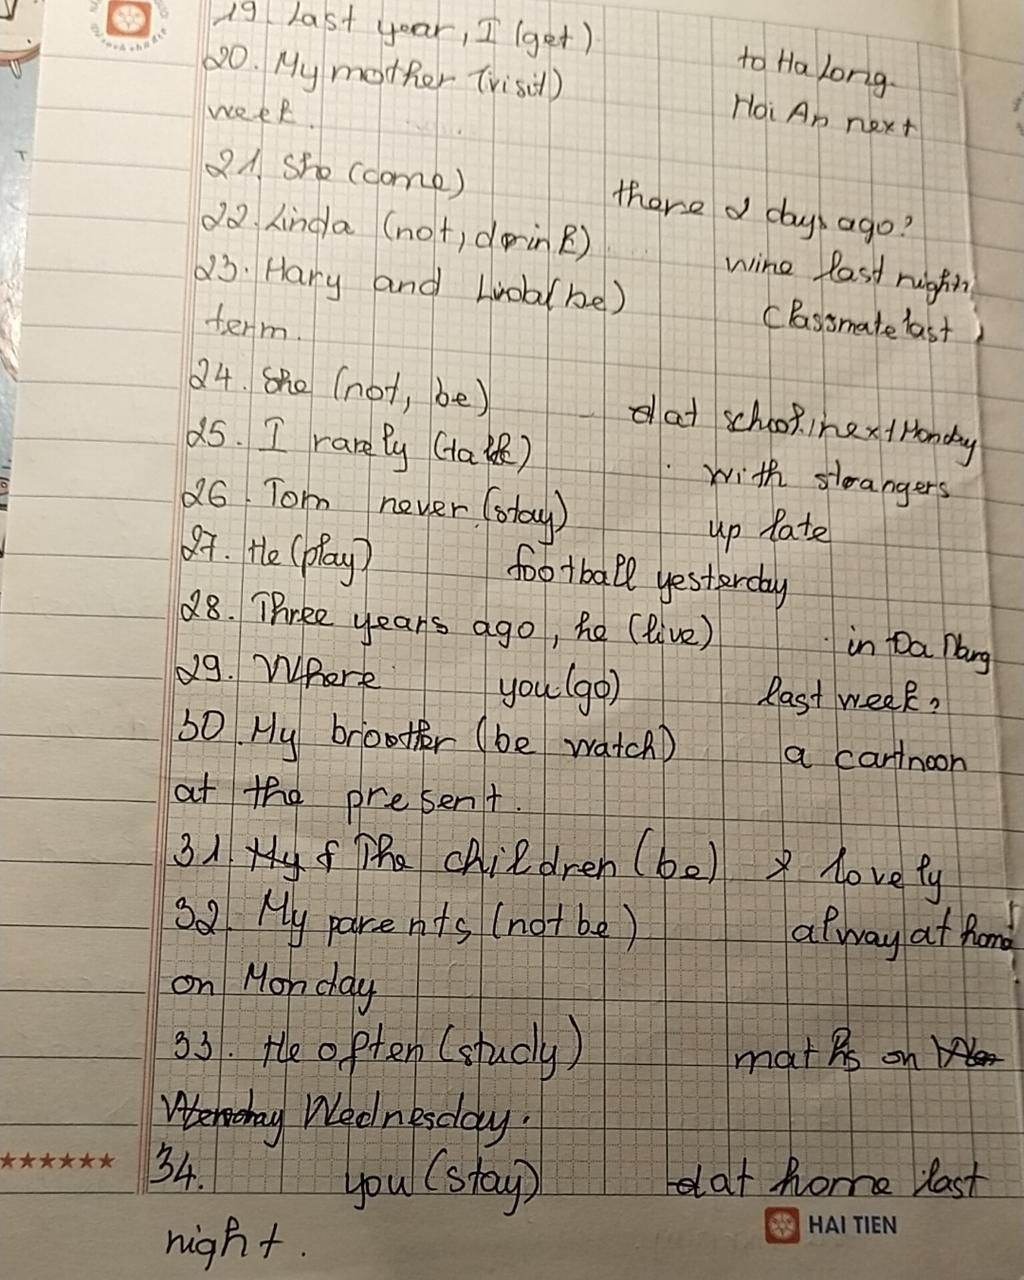 19. Last year, I (get) to Ha Long.
20. My mother (visit) Hoi An next
week.
21. She (come) there 2 days ago?
22. Linda (not, drink) wine last night.
23. Hary and Linda (be) Classmate last
term.
24. She (not, be) at school, next Monday
25. I rarely (talk) with strangers
26. Tom never (stay) up late
27. He (play) football yesterday
28. Three years ago, he (live) in Da Nang
29. Where you (go) last week?
30. My brother (be watch) a cartnoon
at the present.
31. My The children (be) lovely
32. My parents (not be) alway at home
on Monday
33. He often (study) maths on
Wednesday.
34. you (stay) at home last
night.
HAI TIEN